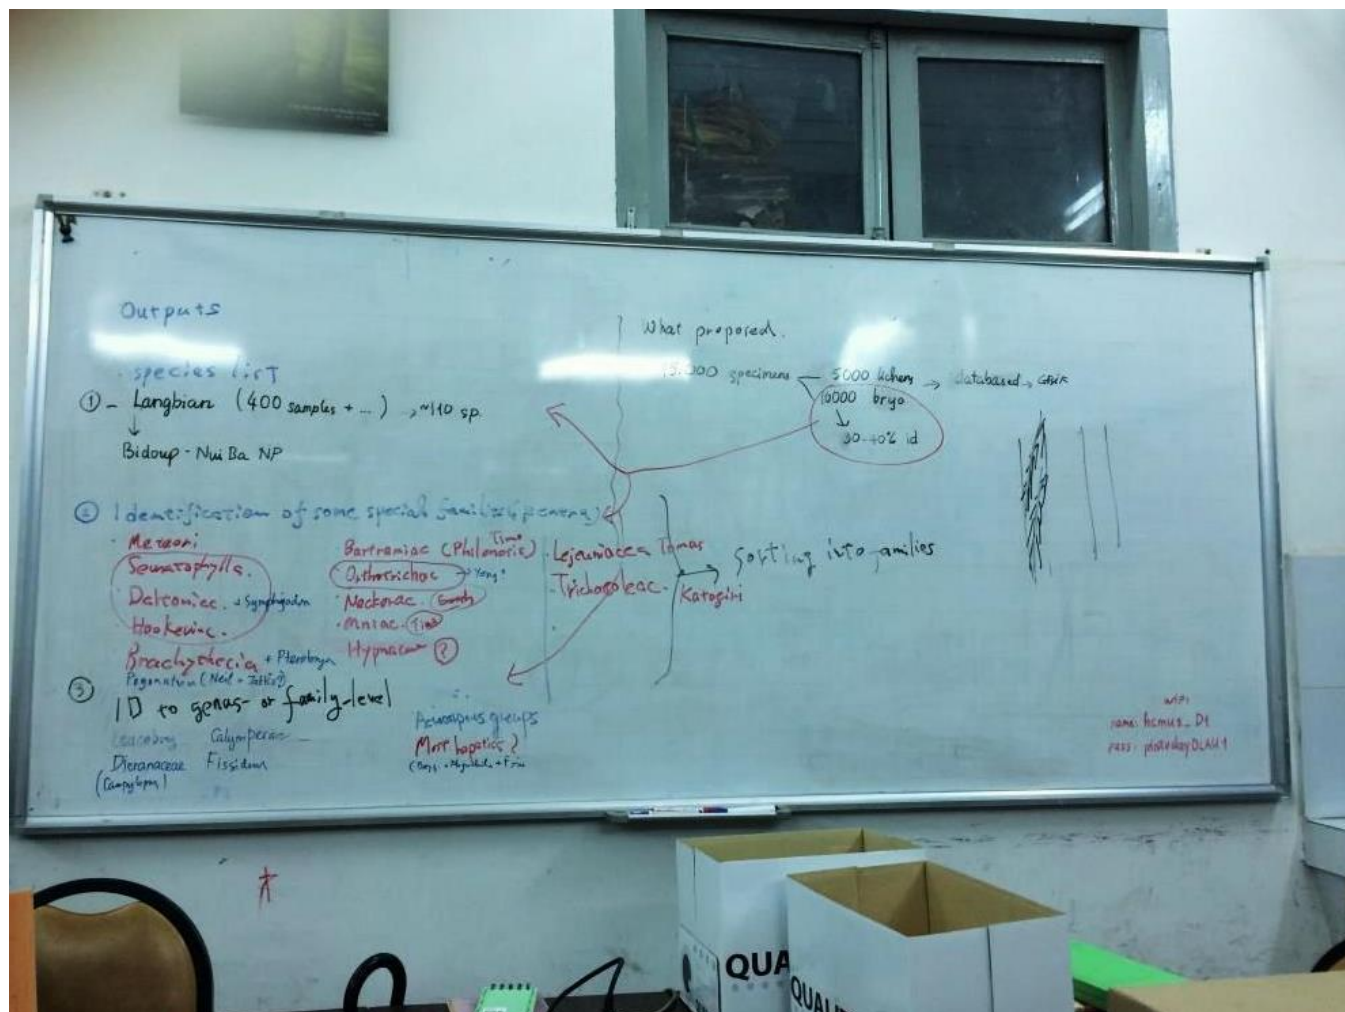 Outputs
. species list
① - Langbian (400 samples + ...) → ~110 sp.
↓
Bidoup - Nui Ba NP
② Identification of some special families
· Meteori
Sematophylla.
Daltoniac. → Symphyodon
Hookeriac.
Brachythecia + Pterobrya
Pogonatum (Neil +
Bartramiac (Philonotis) Timo
Orthotrichac → Yong
Neckerac.
· Mniac. (Timo)
Hypnaceae ?
· Lejeuniacea Tomas
· Trichocoleac. Katagiri
→ Sorting into families
③ ID to genus- or family-level
Leucobry Calymperac
Dicranaceae Fissiden
(Campylopus)
groups
More hepatics?
What proposed.
15.000 specimens
5000 lichens → databased →
10000 bryo
↓
30-40% id
wifi
name: hcmus_D1
pass:
QUA
QUALI